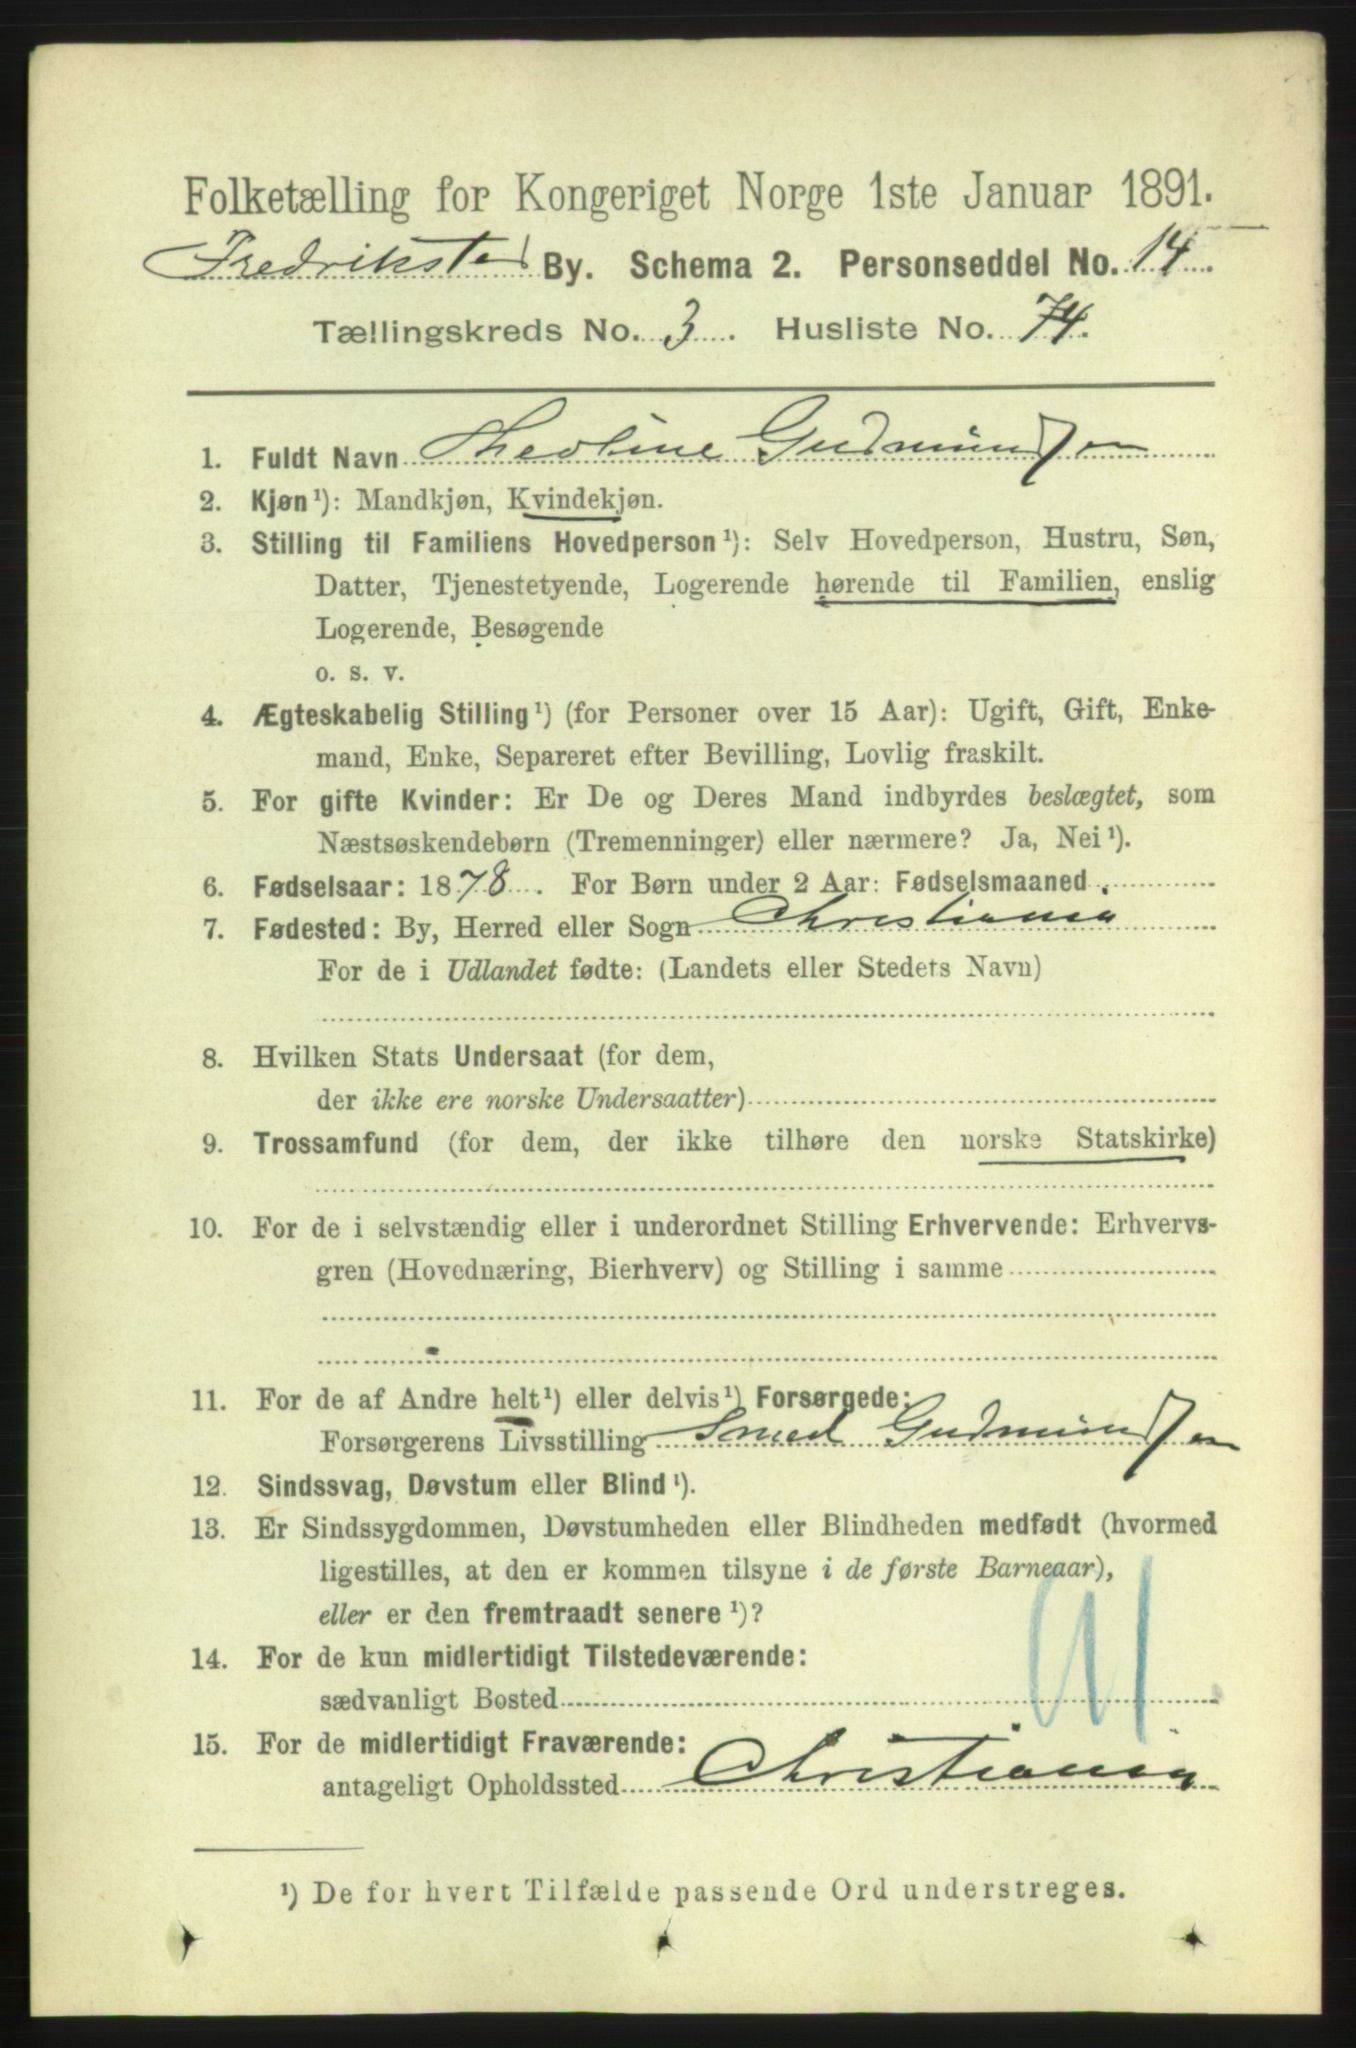 Folketælling for Kongeriget Norge 1ste Januar 1891.
Fredriksted By. Schema 2. Personseddel No. 14.
Tællingskreds No. 3. Husliste No. 74.
1. Fuldt Navn Theoline Gudmundsen
2. Kjøn¹): Mandkjøn, Kvindekjøn.
3. Stilling til Familiens Hovedperson¹): Selv Hovedperson, Hustru, Søn,
Datter, Tjenestetyende, Logerende hørende til Familien, enslig
Logerende, Besøgende
o. s. v.
4. Ægteskabelig Stilling¹) (for Personer over 15 Aar): Ugift, Gift, Enke-
mand, Enke, Separeret efter Bevilling, Lovlig fraskilt.
5. For gifte Kvinder: Er De og Deres Mand indbyrdes beslægtet, som
Næstsøskendebørn (Tremenninger) eller nærmere? Ja, Nei¹).
6. Fødselsaar: 1878. For Børn under 2 Aar: Fødselsmaaned
7. Fødested: By, Herred eller Sogn Christiania
For de i Udlandet fødte: (Landets eller Stedets Navn)
8. Hvilken Stats Undersaat (for dem,
der ikke ere norske Undersaatter)
9. Trossamfund (for dem, der ikke tilhøre den norske Statskirke)
10. For de i selvstændig eller i underordnet Stilling Erhvervende: Erhvervs-
gren (Hovednæring, Bierhverv) og Stilling i samme
11. For de af Andre helt¹) eller delvis¹) Forsørgede:
Forsørgerens Livsstilling Smed Gudmundsen
12. Sindssvag, Døvstum eller Blind¹).
13. Er Sindssygdommen, Døvstumheden eller Blindheden medfødt (hvormed
ligestilles, at den er kommen tilsyne i de første Barneaar),
eller er den fremtraadt senere¹)?
14. For de kun midlertidigt Tilstedeværende:
sædvanligt Bosted
15. For de midlertidigt Fraværende:
antageligt Opholdssted Christiania
¹) De for hvert Tilfælde passende Ord understreges.